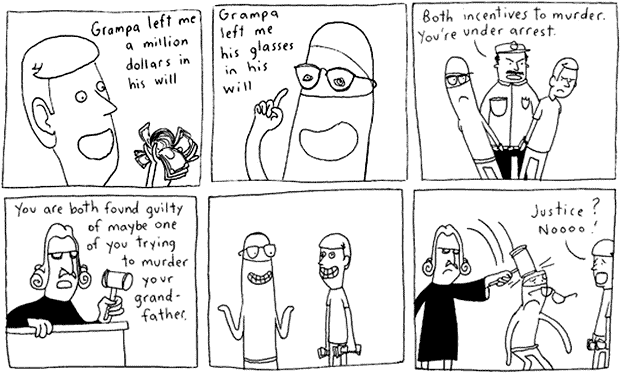 Grampa left me
a million
dollars in
his will
Grampa
left me
his glasses
in his
will
Both incentives to murder.
You're under arrest.
You are both found guilty
of maybe one
of you trying
to murder
your
grand-
father.
Justice?
Noooo!